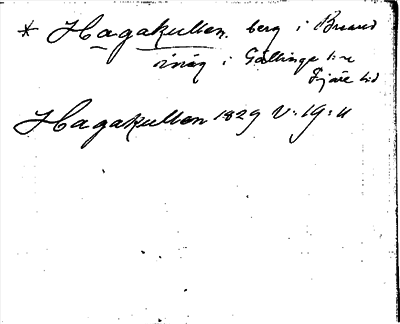 * Hagakullen. berg i
i Gällinge
Fjäre hd
Hagakullen 1829 V: 19: 11